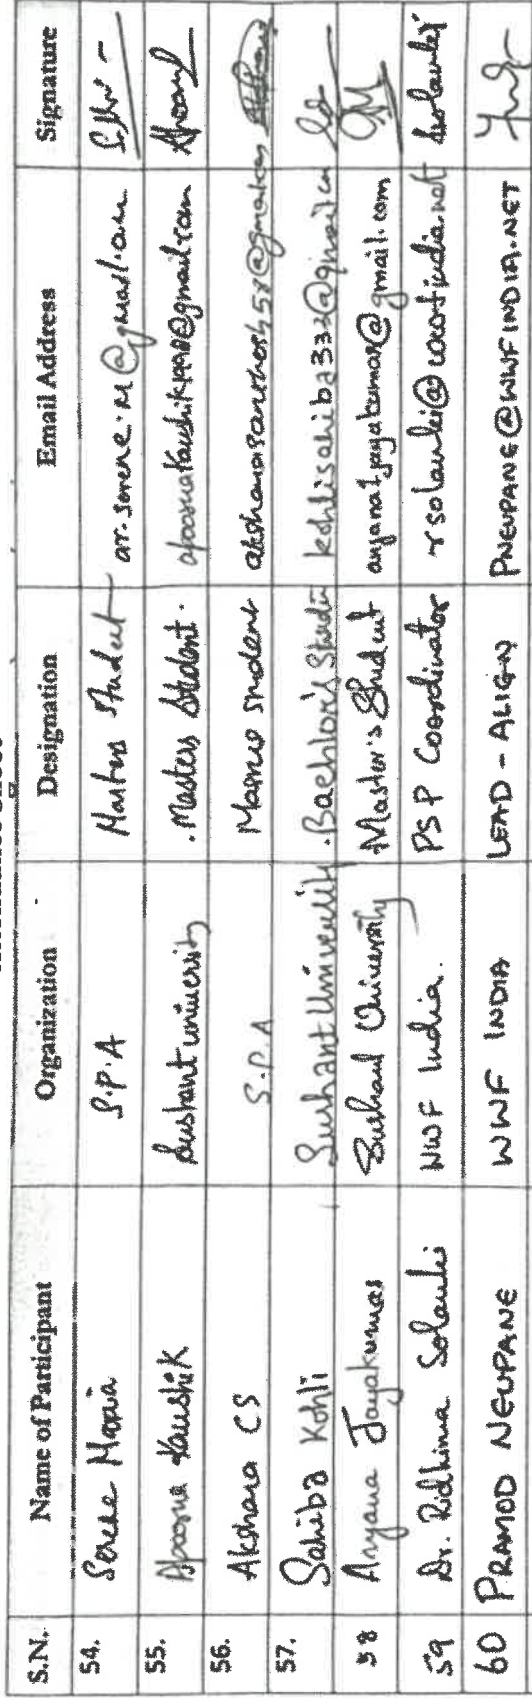 S.N. Name of Participant Organization Designation Email Address Signature
54. Serene Maria S.P.A Masters Student ar.serene.m@gmail.com
55. Apoorva Kaushik Sushant University Masters Student. apoorvakaushik1998@gmail.com
56. Akshara CS S.P.A Masters Student aksharasanthosh58@gmail.com
57. Sahiba Kohli Sushant University Bachlor's Studen kohlisahiba332@gmail.com
58 Anjana Jayakumar Sushant University Master's Student anjanatjayakumar@gmail.com
59 Dr. Ridhima Solanki WWF India. PSP Coordinator rsolanki@wwfindia.net Rsolanki
60 PRAMOD NEUPANE WWF INDIA LEAD - ALIGN PNEUPANE@WWFINDIA.NET